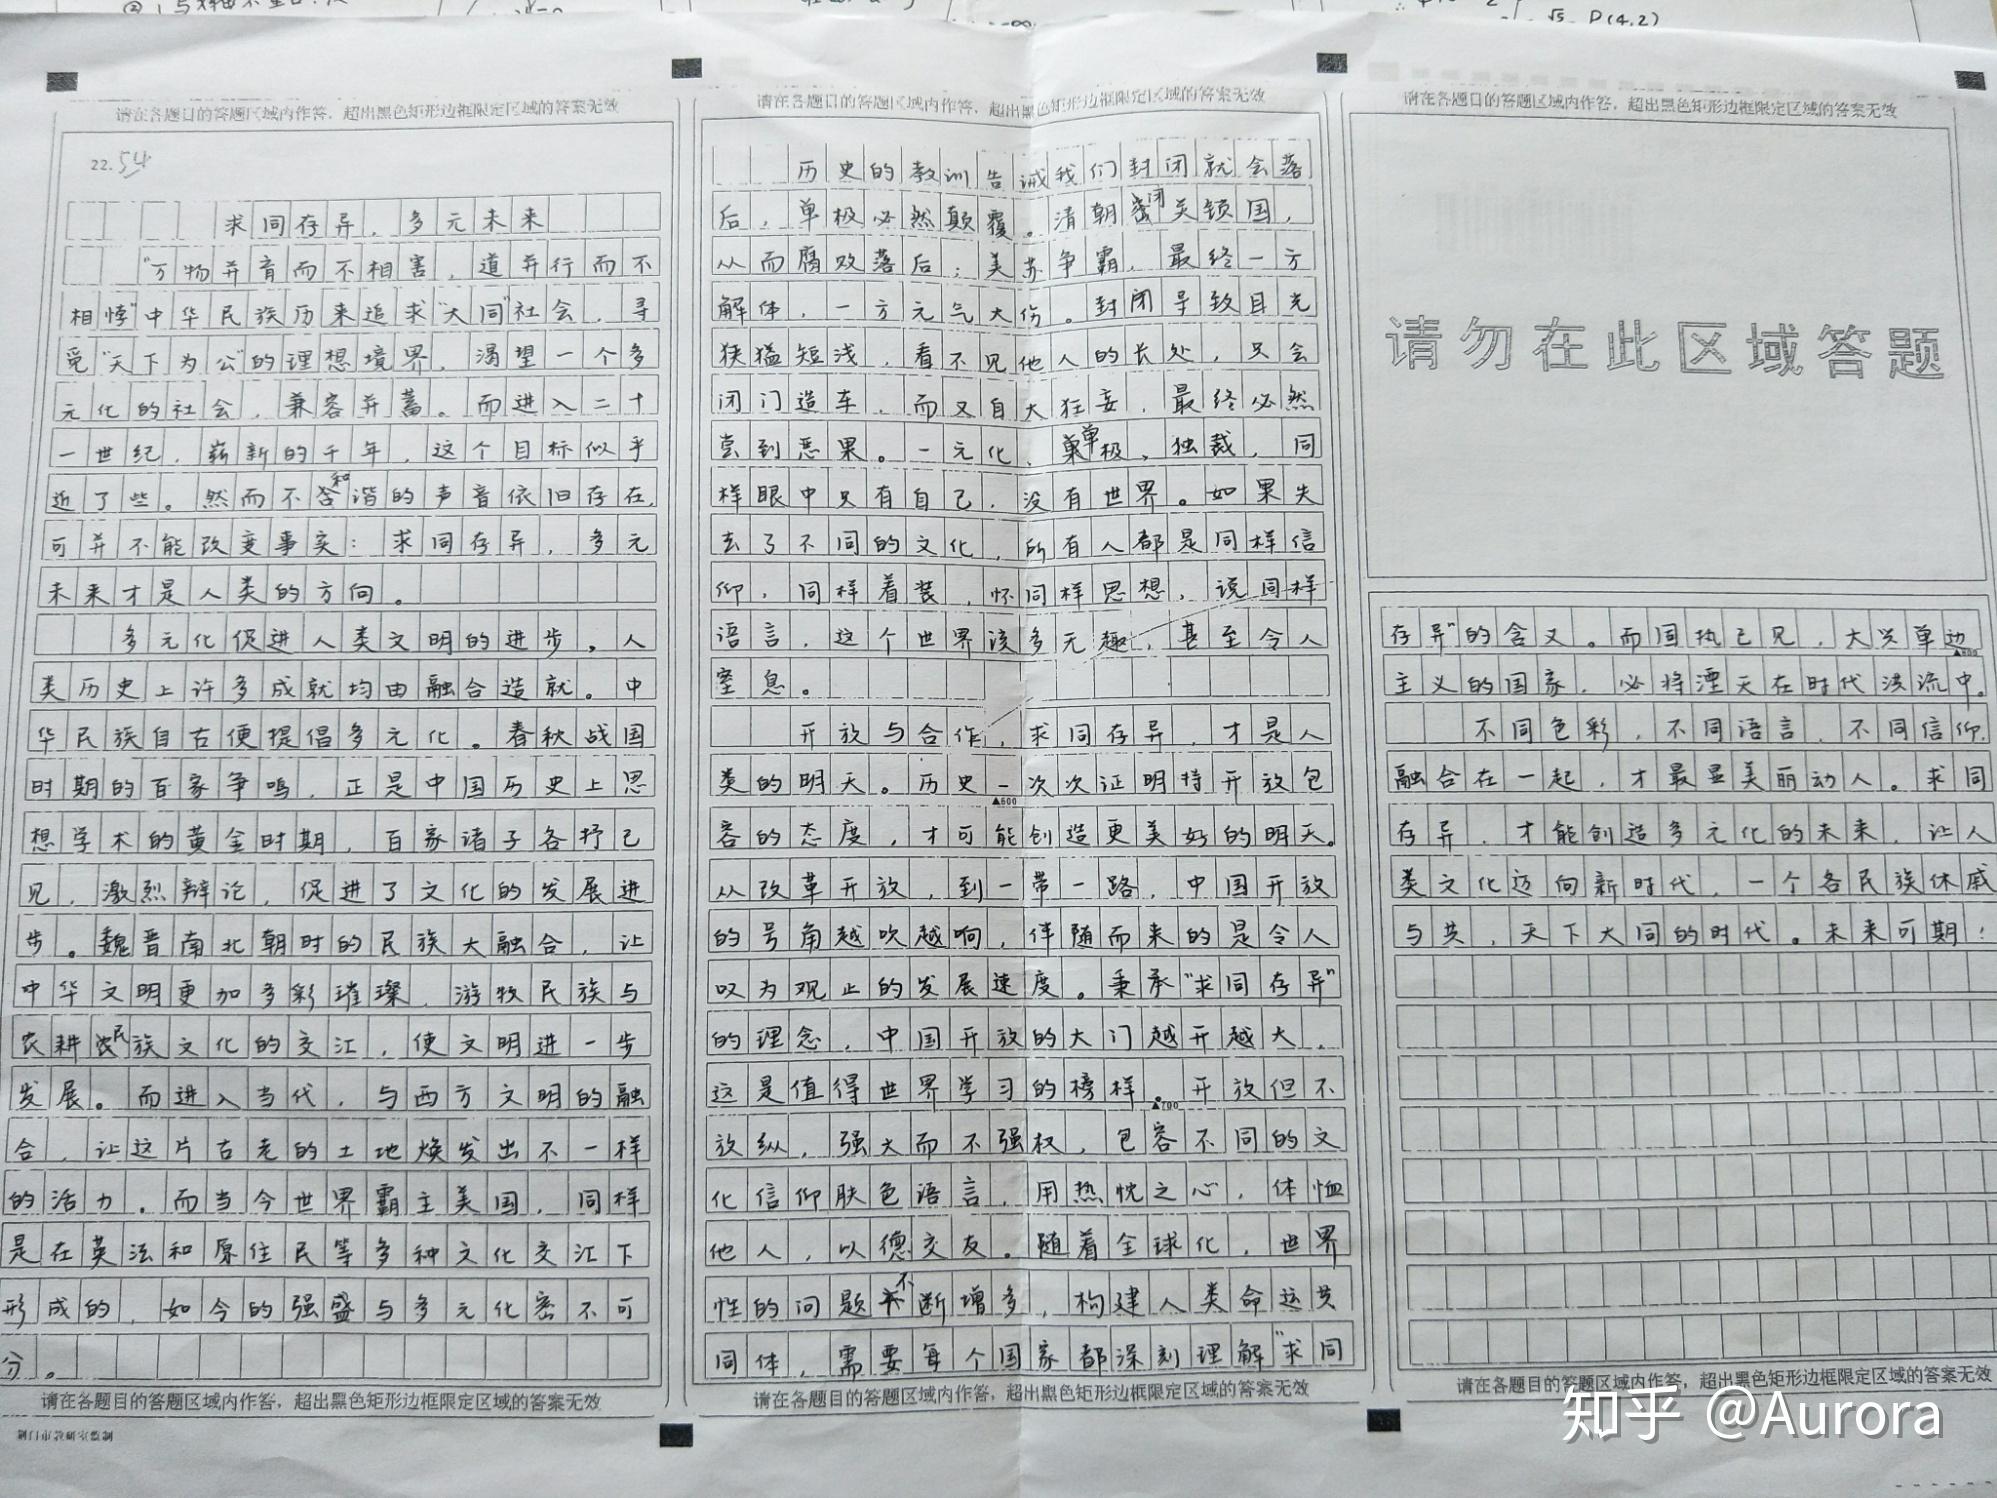 请在各题目的答题区域内作答，超出黑色矩形边框限定区域的答案无效
22. 54
求同存异，多元未来
“万物并育而不相害，道并行而不
相悖”中华民族历来追求“大同”社会，寻
觅“天下为公”的理想境界，渴望一个多
元化的社会，兼容并蓄。而进入二十
一世纪，崭新的千年，这个目标似乎
近了些。然而不和谐的声音依旧存在，
可并不能改变事实：求同存异，多元
未来才是人类的方向。
多元化促进人类文明的进步。人
类历史上许多成就均由融合造就。中
华民族自古便提倡多元化。春秋战国
时期的百家争鸣，正是中国历史上思
想学术的黄金时期，百家诸子各抒己
见，激烈辩论，促进了文化的发展进
步。魏晋南北朝时的民族大融合，让
中华文明更加多彩璀璨，游牧民族与
农耕民族文化的交汇，使文明进一步
发展。而进入当代，与西方文明的融
合，让这片古老的土地焕发出不一样
的活力。而当今世界霸主美国，同样
是在英法和原住民等多种文化交汇下
形成的，如今的强盛与多元化密不可
分。
请在各题目的答题区域内作答，超出黑色矩形边框限定区域的答案无效
荆门市教研室监制
请在各题目的答题区域内作答，超出黑色矩形边框限定区域的答案无效
历史的教训告诫我们封闭就会落
后，单极必然颠覆。清朝闭关锁国，
从而腐败落后；美苏争霸，最终一方
解体，一方元气大伤。封闭导致目光
狭猛短浅，看不见他人的长处，只会
闭门造车，而又自大狂妄，最终必然
尝到恶果。一元化、单极、独裁，同
样眼中只有自己，没有世界。如果失
去了不同的文化，所有人都是同样信
仰，同样着装，怀同样思想，说同样
语言，这个世界该多无趣，甚至令人
窒息。
开放与合作，求同存异，才是人
类的明天。历史一次次证明持开放包
▲600
容的态度，才可能创造更美好的明天。
从改革开放，到一带一路，中国开放
的号角越吹越响，伴随而来的是令人
叹为观止的发展速度。秉承“求同存异”
的理念，中国开放的大门越开越大，
这是值得世界学习的榜样。开放但不
▲700
放纵，强大而不强权，包容不同的文
化信仰肤色语言，用热忱之心，体恤
他人，以德交友。随着全球化，世界
性的问题不断增多，构建人类命运共
同体，需要每个国家都深刻理解“求同
请在各题目的答题区域内作答，超出黑色矩形边框限定区域的答案无效
请在各题目的答题区域内作答，超出黑色矩形边框限定区域的答案无效
请勿在此区域答题
存异”的含义。而固执己见，大兴单边
▲800
主义的国家，必将湮灭在时代洪流中。
不同色彩，不同语言，不同信仰，
融合在一起，才最显美丽动人。求同
存异，才能创造多元化的未来，让人
类文化迈向新时代，一个各民族休戚
与共，天下大同的时代。未来可期！
请在各题目的答题区域内作答，超出黑色矩形边框限定区域的答案无效
知乎 @Aurora